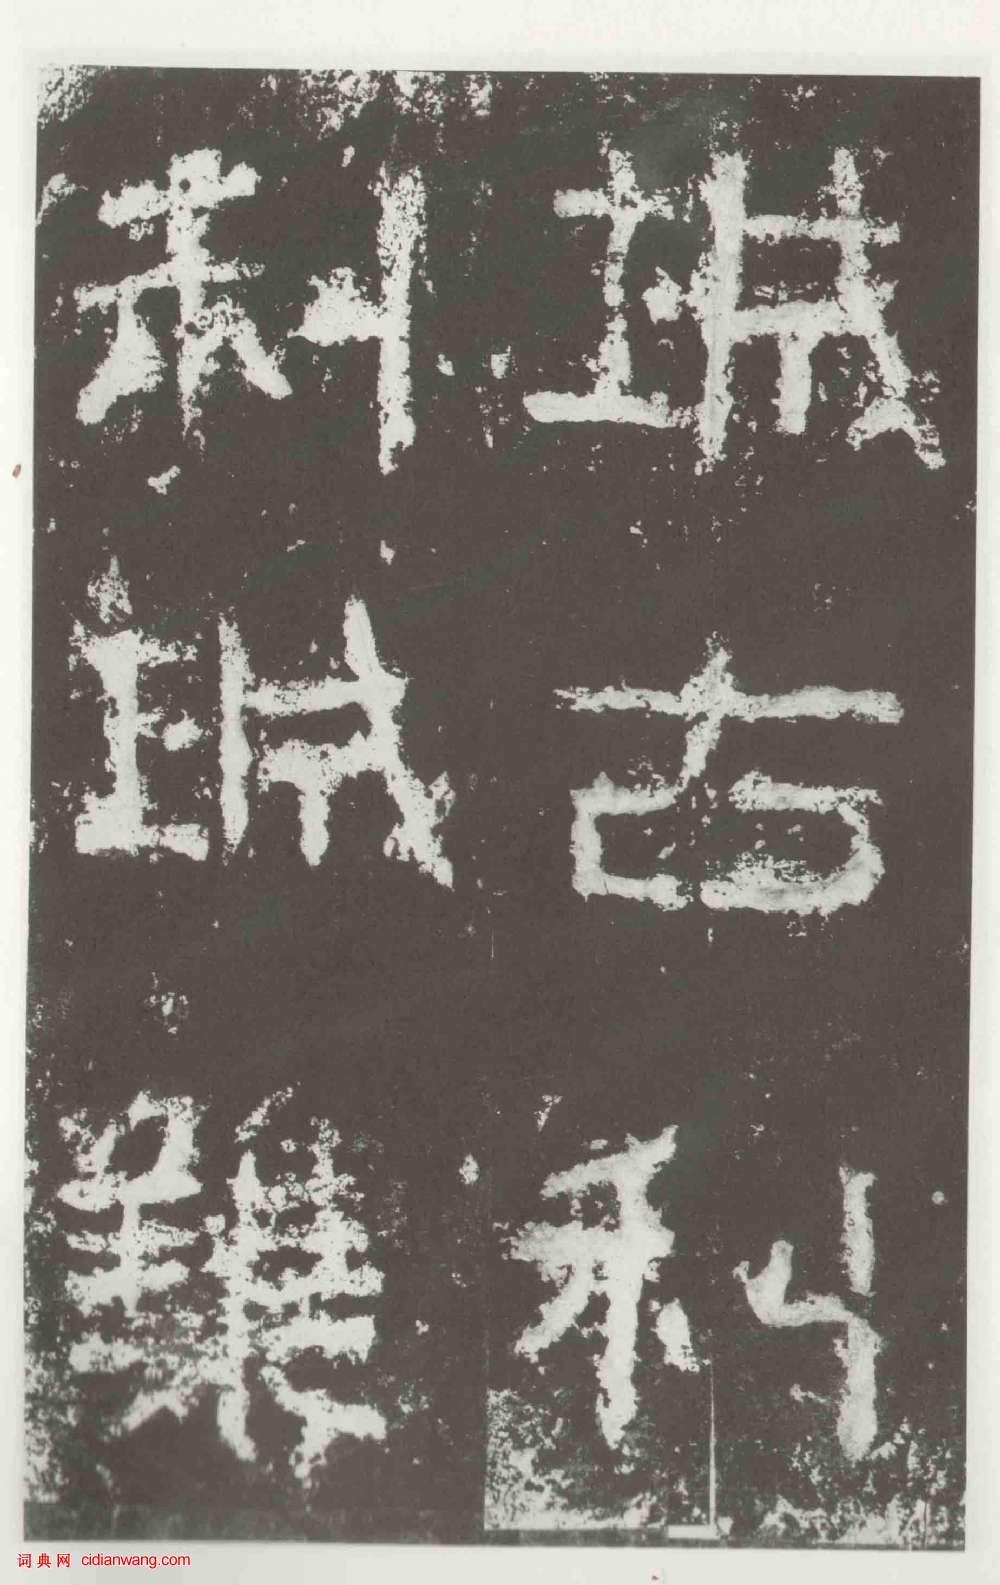 城古利
利城雜
词典网 cidianwang.com